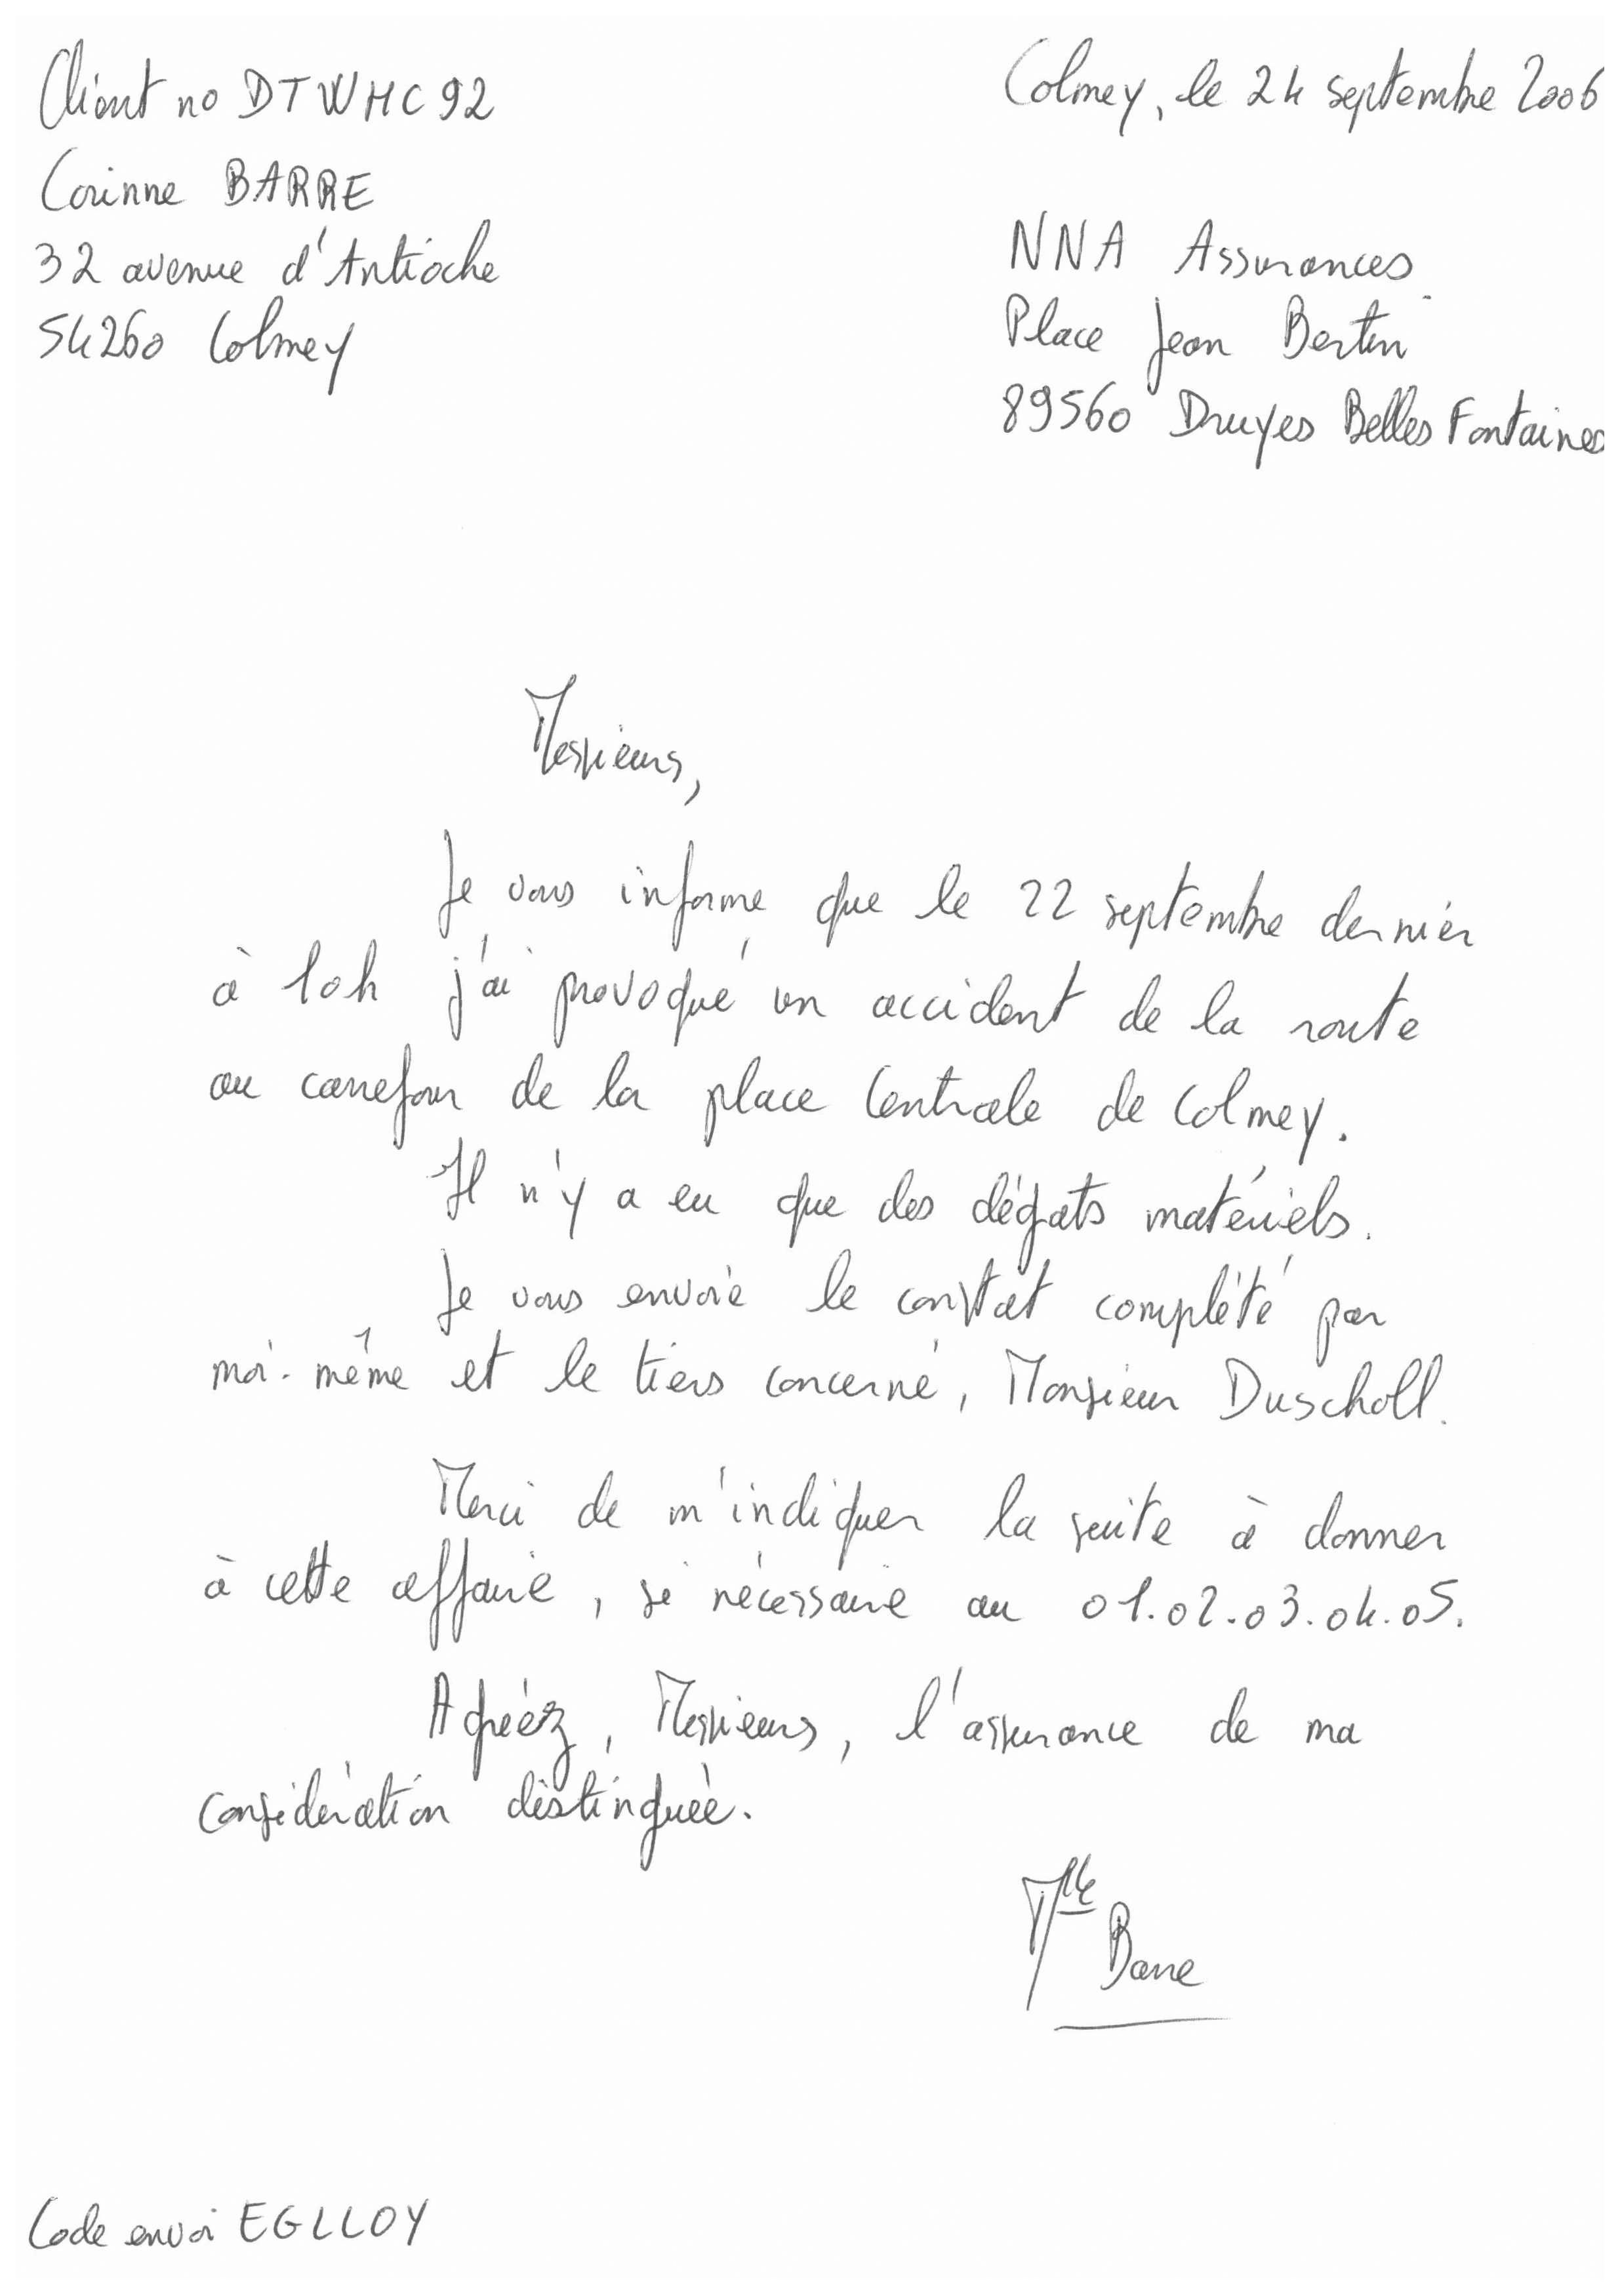 Client no DTWHC92
Corinne BARRE
32 avenue d'Antioche
54260 Colmey
Colmey, le 24 septembre 2006
NNA Assurances
Place Jean Bertin
89560 Druyes Belles Fontaines
Messieurs,
Je vous informe que le 22 septembre dernier
à 10h j'ai provoqué un accident de la route
au carrefour de la place Centrale de Colmey.
Il n'y a eu que des dégats matériels.
Je vous envoie le constat complété par
moi-même et le tiers concerné, Monsieur Duscholl.
Merci de m'indiquer la suite à donner
à cette affaire, si nécessaire au 01.02.03.04.05.
Agréez, Messieurs, l'assurance de ma
considération distinguée.
Mlle Barre
Code envoi EGLLOY